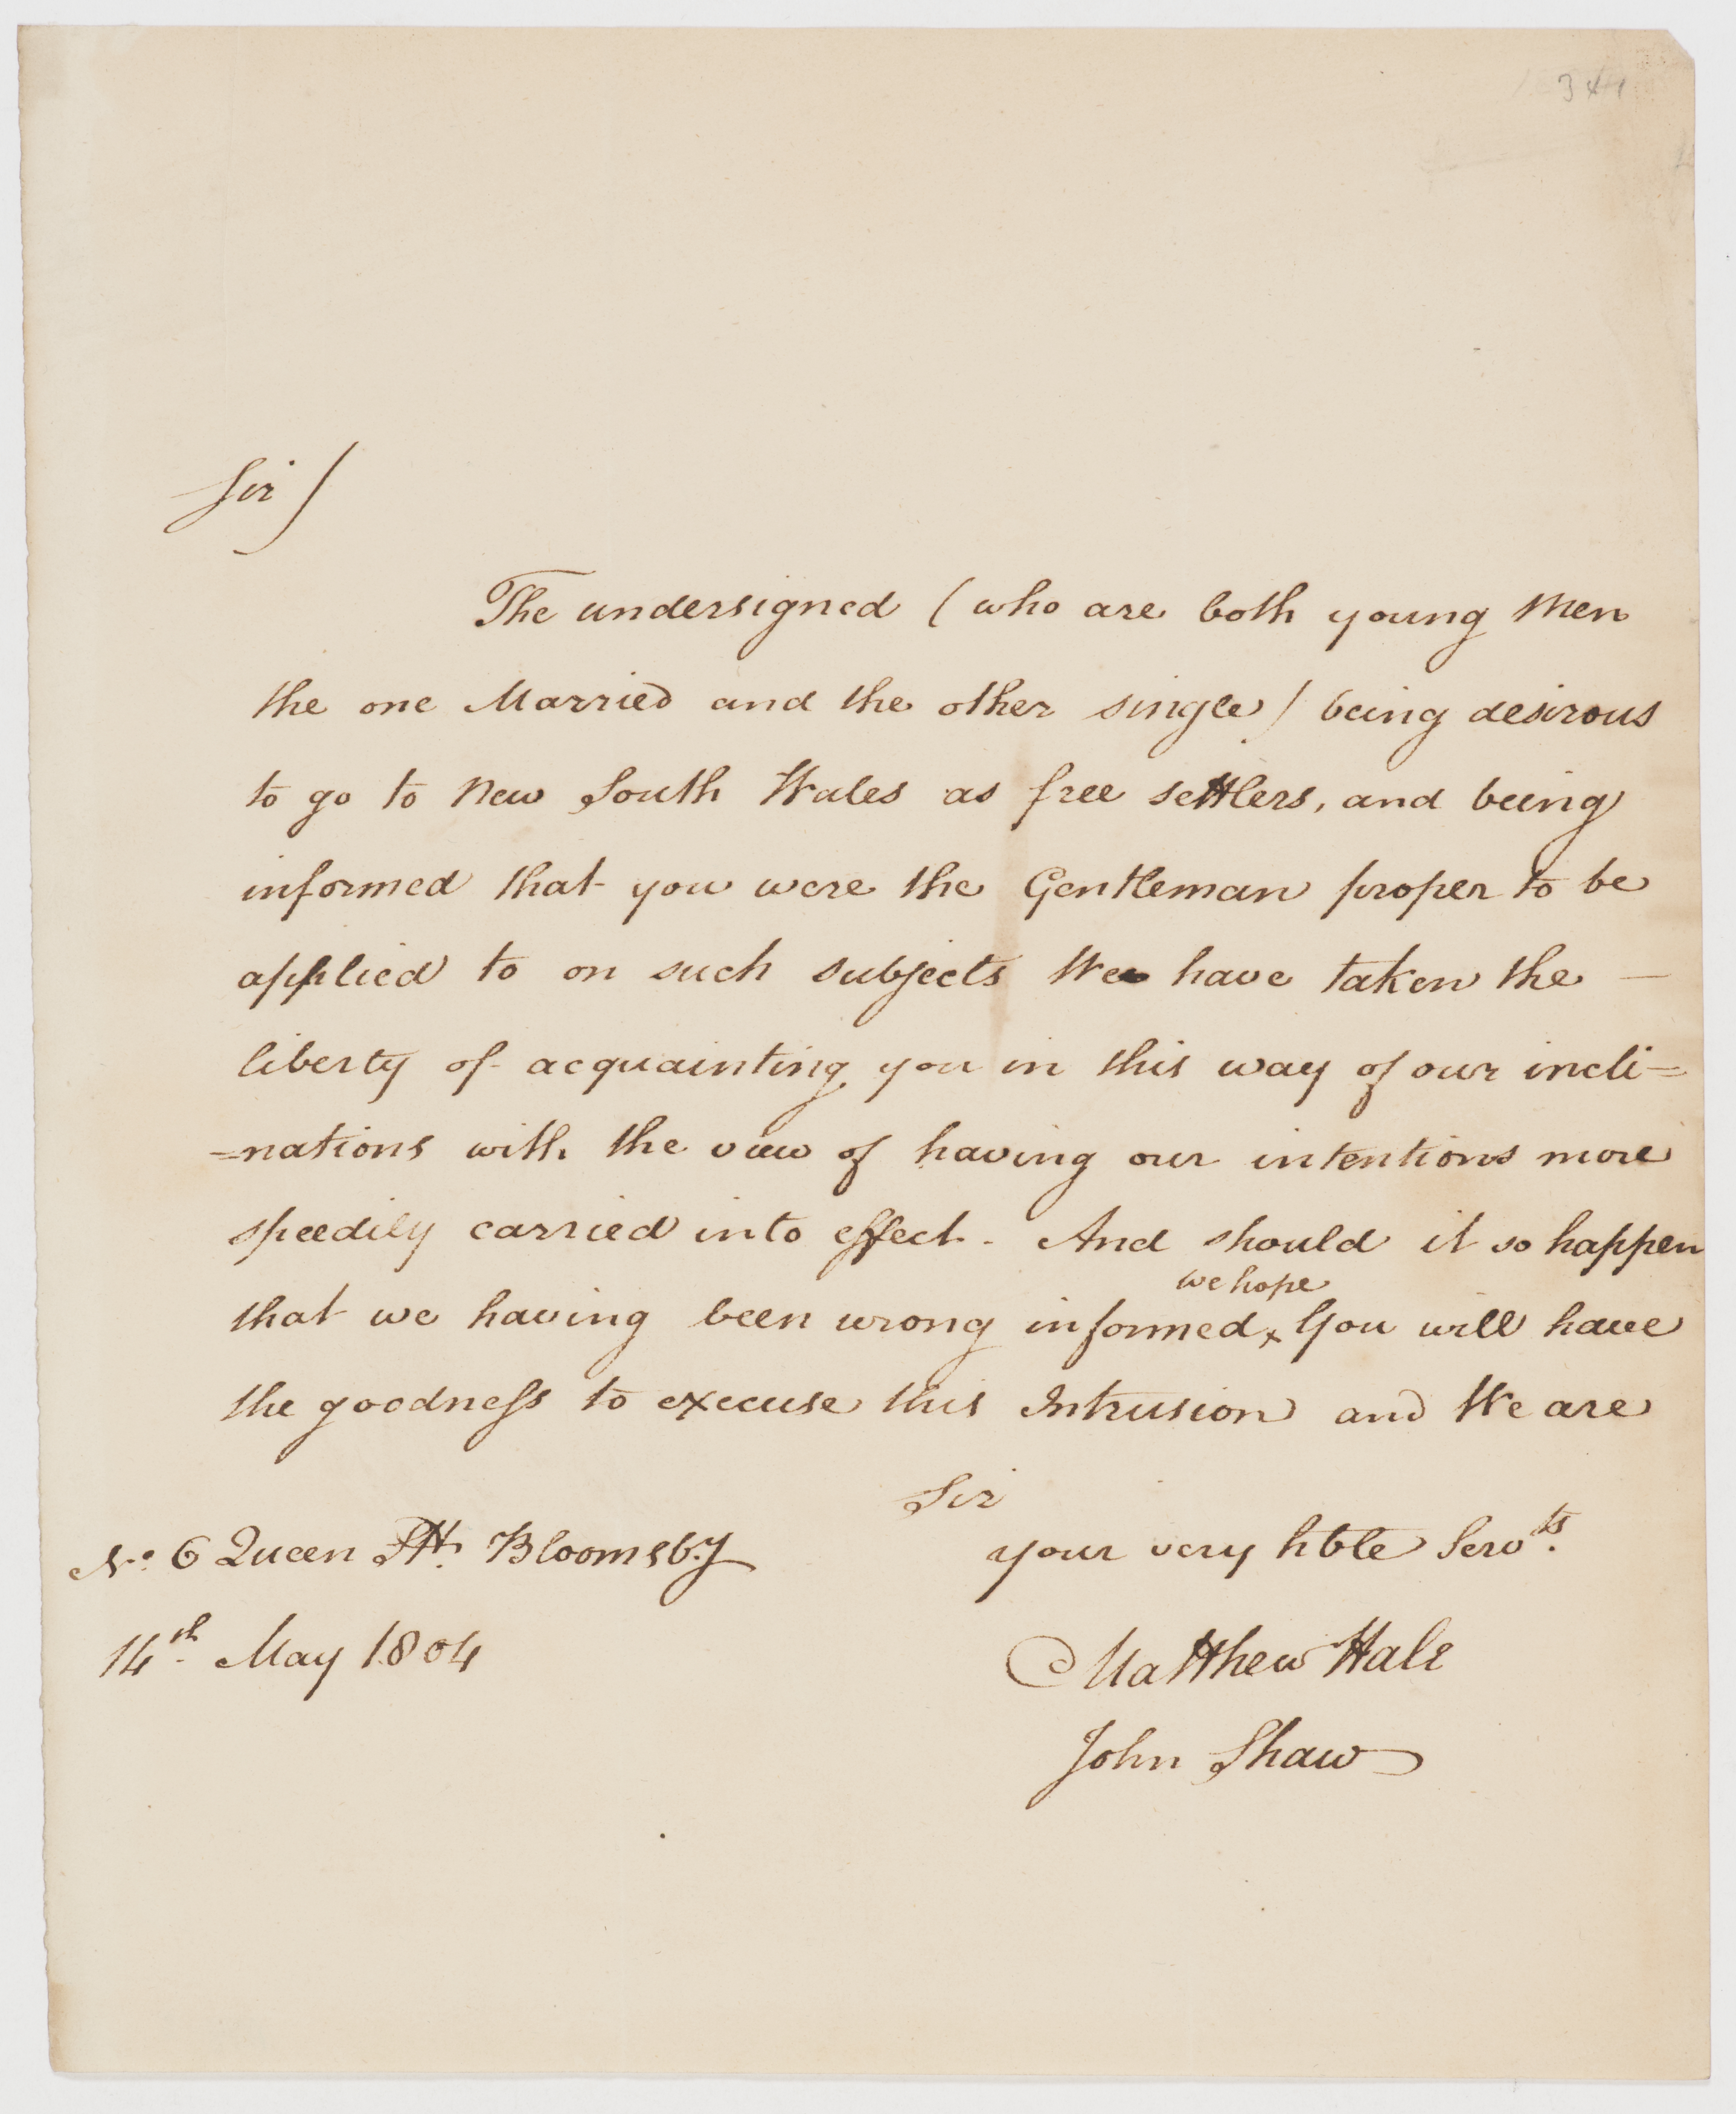 Sir /
The undersigned ( who are both young Men
the one Married and the other single ) being desirous
to go to New South Wales as free settlers, and being
informed that you were the Gentleman proper to be
applied to on such subjects We have taken the —
liberty of acquainting you in this way of our incli=
=nations with the view of having our intentions more
speedily carried into effect. And should it so happen
we hope
that we having been wrong informed x You will have
the goodness to excuse this Intrusion and We are
Sir
your very hble Servts.
No. 6 Queen Stt. Bloomsby
14th May 1804
Matthew Hale
John Shaw